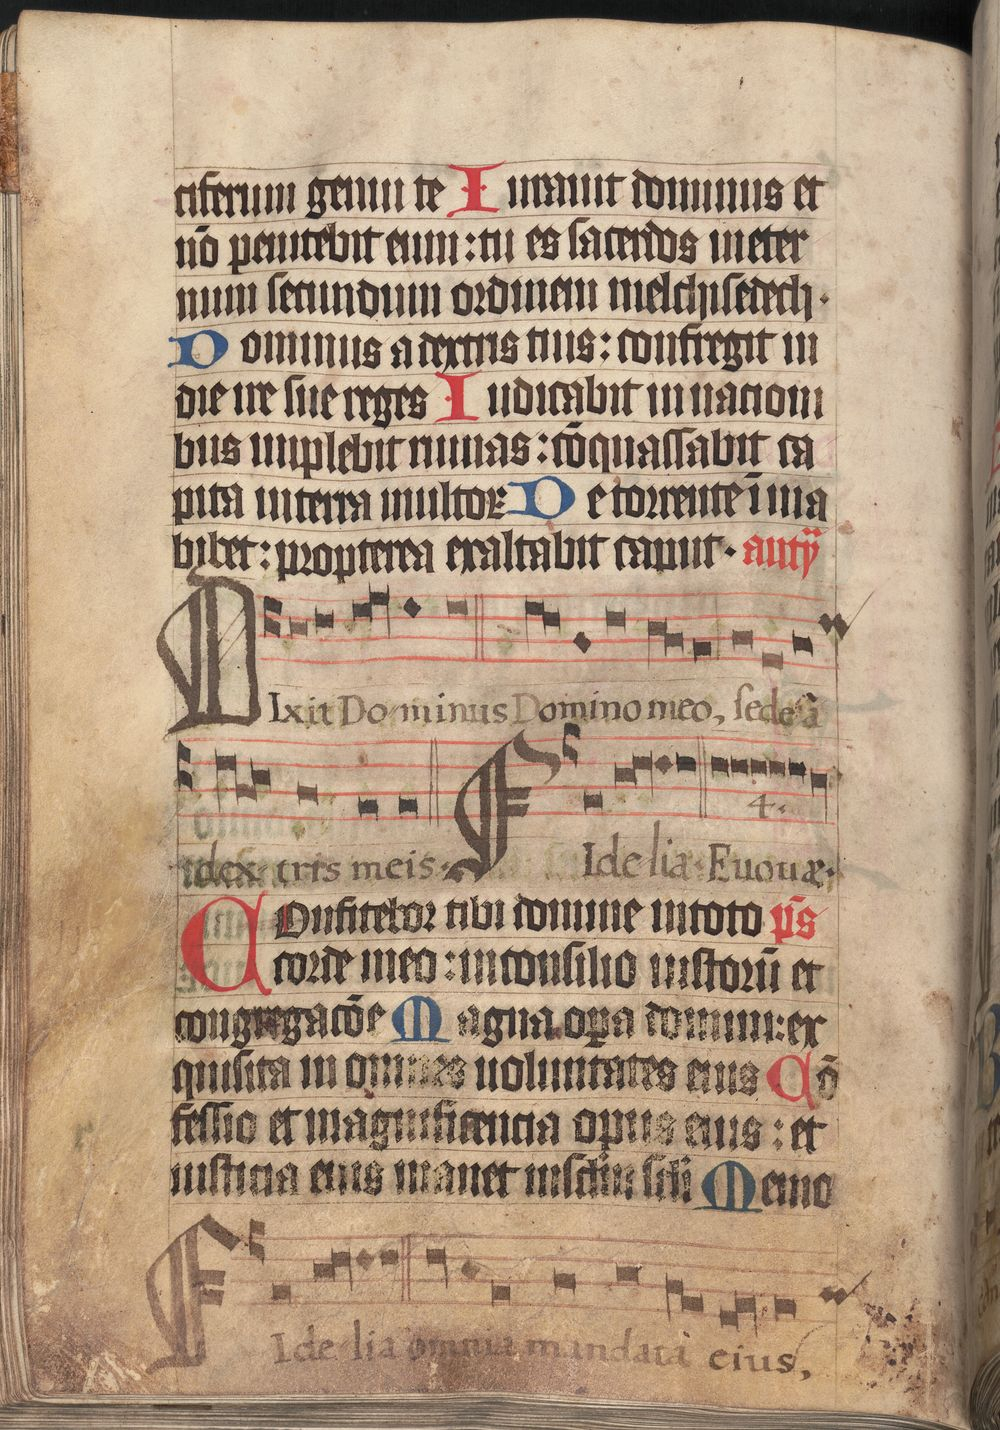 ciferum genui te Iurauit dominus et
nō penitebit eum: tu es sacerdos ineter
num secundum ordinem melchisedech.
Dominus a dextris tuis: confregit in
die ire sue reges Iudicabit in nacioni
bus implebit ruinas: cōquassabit ca
pita in terra multoꝝ De torrente ī uia
bibet: propterea exaltabit caput. 
DIxit Dominus Domino meo, sede ȧ
dextris meis.
FIdelia. Euouæ.
4.
COnfitebor tibi domine in toto ps
corde meo: in consilio iustorū et
congregacōe Magna oꝑa domini: ex
quisita in omnes uoluntates eius Cō
fessio et magnificencia opus eius: et
iusticia eius manet in sclm scli Memo
FIdelia omnia mandata eius,